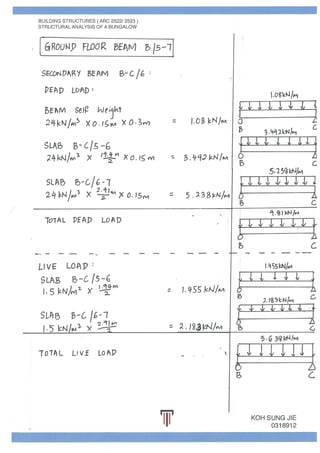 BUILDING STRUCTURES ( ARC 2522/ 2523 )
STRUCTURAL ANALYSIS OF A BUNGALOW
GROUND FLOOR BEAM B/5-7
SECONDARY BEAM B-C/6 :
DEAD LOAD :
1.08kN/m
BEAM Self Weight
24kN/m³ X 0.15m X 0.3m = 1.08 kN/m
B C
3.492kN/m
SLAB B-C/5-6
24kN/m³ X 1.94m/2 X 0.15m = 3.492 kN/m
B C
5.238kN/m
SLAB B-C/6-7
24kN/m³ X 2.91m/2 X 0.15m = 5.238 kN/m
B C
9.81kN/m
TOTAL DEAD LOAD
B C
LIVE LOAD :
1.455kN/m
SLAB B-C/5-6
1.5 kN/m² X 1.94m/2 = 1.455 kN/m
B C
2.183kN/m
SLAB B-C/6-7
1.5 kN/m² X 2.91m/2 = 2.183kN/m
B C
3.638kN/m
TOTAL LIVE LOAD
B C
KOH SUNG JIE
0318912